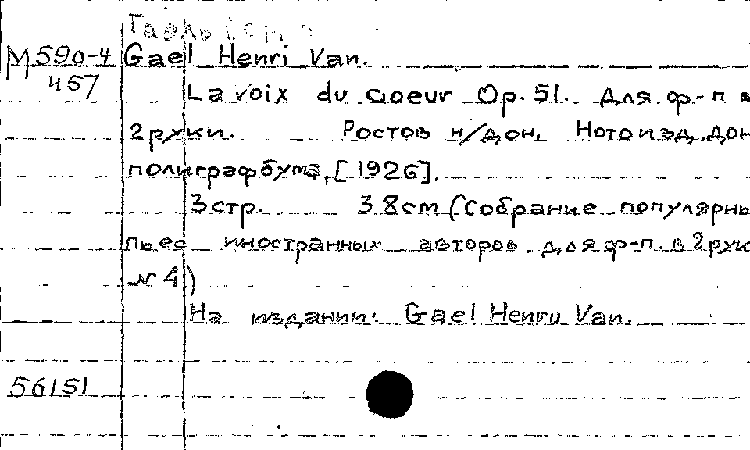 М590-4 Gael Henri Van.
457
La voix du coeur Op. 51. Для ф-п в
2 руки. Ростов н/Дон, Нотоизд. Дон
полиграфбума, [1926].
3 стр. 38см (Собрание популярны
пьес иностранных авторов для ф-п. в 2 рук
№ 4)
На издании: Gael Henry Van.
56151